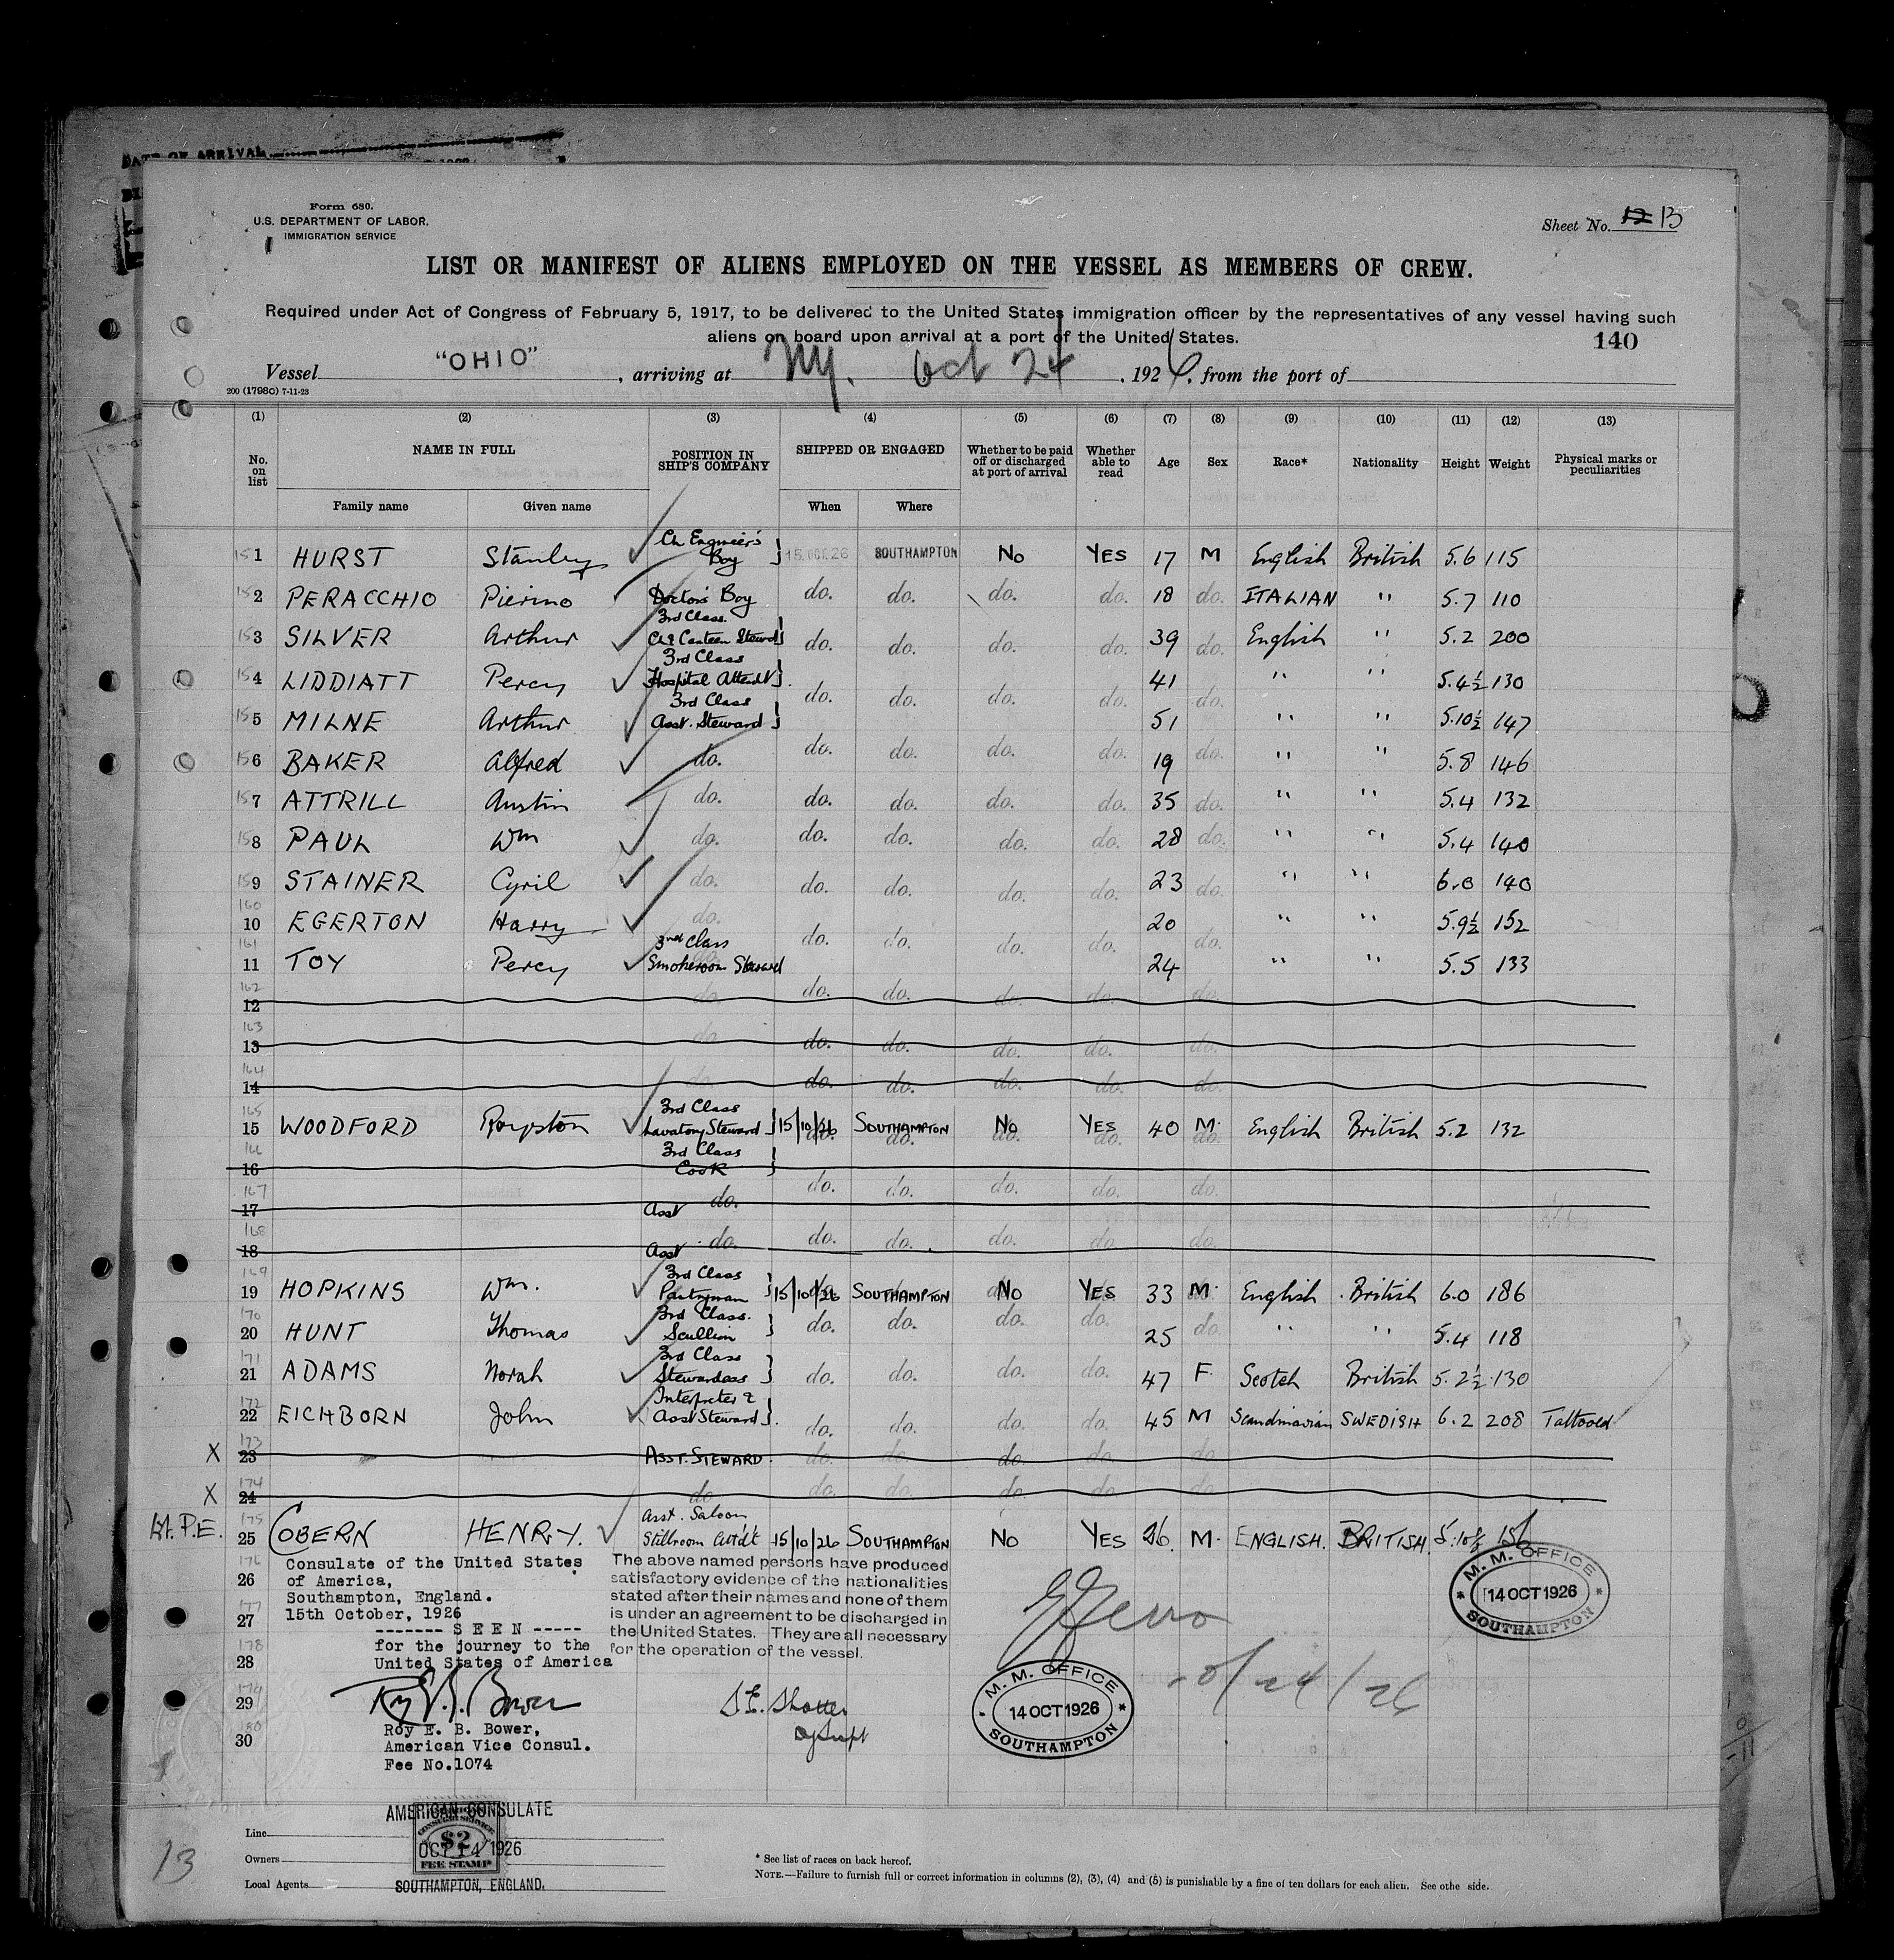 DATE OF ARRIVAL
Form 680.
U.S. DEPARTMENT OF LABOR.
IMMIGRATION SERVICE
Sheet No. 12 13
LIST OR MANIFEST OF ALIENS EMPLOYED ON THE VESSEL AS MEMBERS OF CREW.
Required under Act of Congress of February 5, 1917, to be delivered to the United States immigration officer by the representatives of any vessel having such
aliens on board upon arrival at a port of the United States.
140
Vessel "OHIO", arriving at N.Y. Oct 24, 1926, from the port of
200 (1798C) 7-11-23
(1) (2) (3) (4) (5) (6) (7) (8) (9) (10) (11) (12) (13)
No. on list NAME IN FULL POSITION IN SHIP'S COMPANY SHIPPED OR ENGAGED Whether to be paid off or discharged at port of arrival Whether able to read Age Sex Race* Nationality Height Weight Physical marks or peculiarities
Family name Given name When Where
151 1 HURST Stanley Ch Engineer's Boy 15 OCT 26 SOUTHAMPTON No YES 17 M English British 5.6 115
152 2 PERACCHIO Pierino Doctors Boy do. do. do. do. 18 do. ITALIAN " 5.7 110
153 3 SILVER Arthur 3rd Class. Ch Canteen Steward do. do. do. do. 39 do. English " 5.2 200
154 4 LIDDIATT Percy 3rd Class Hospital Attendt do. do. do. do. 41 do. " " 5.4½ 130
155 5 MILNE Arthur 3rd Class Asst. Steward do. do. do. do. 51 do. " " 5.10½ 147
156 6 BAKER Alfred do. do. do. do. do. 19 do. " " 5.8 146
157 7 ATTRILL Austin do. do. do. do. do. 35 do. " " 5.4 132
158 8 PAUL Wm do. do. do. do. do. 28 do. " " 5.4 140
159 9 STAINER Cyril do. do. do. do. do. 23 do. " " 6.0 140
160 10 EGERTON Harry do. do. do. do. do. 20 do. " " 5.9½ 152
161 11 TOY Percy 3rd Class Smokeroom Steward do. do. do. do. 24 do. " " 5.5 133
162 12 do. do. do. do. do. do.
163 13 do. do. do. do. do. do.
164 14 do. do. do. do. do. do.
165 15 WOODFORD Royston 3rd Class Lavatory Steward 15/10/26 SOUTHAMPTON No YES 40 M. English British 5.2 132
166 16 3rd Class Cook do. do. do. do. do.
167 17 Asst do. do. do. do. do. do.
168 18 Asst do.
169 19 HOPKINS Wm. 3rd Class Pantryman 15/10/26 SOUTHAMPTON No YES 33 M. English British 6.0 186
170 20 HUNT Thomas 3rd Class. Scullion do. do. do. do. 25 do. " " 5.4 118
171 21 ADAMS Norah 3rd Class Stewardess do. do. do. do. 47 F. Scotch British 5.2½ 130
172 22 EICHBORN John Interpreter & Asst Steward do. do. do. do. 45 M Scandinavian SWEDISH 6.2 208 Tattooed
X 173 23 ASST. STEWARD. do. do. do. do. do.
X 174 24 do do. do. do. do. do.
175 25 COBERN HENRY. Asst. Saloon Stillroom Attdt 15/10/26 SOUTHAMPTON No YES 26. M. ENGLISH. BRITISH. 5.10½ 156
176 26
177 27
178 28
179 29
180 30
Consulate of the United States
of America,
Southampton, England.
15th October, 1926
------- S E E N -----
for the journey to the
United States of America
Roy E. B. Bower,
American Vice Consul.
Fee No.1074
The above named persons have produced
satisfactory evidence of the nationalities
stated after their names and none of them
is under an agreement to be discharged in
the United States. They are all necessary
for the operation of the vessel.
M. M. OFFICE
14 OCT 1926
SOUTHAMPTON
M. M. OFFICE
14 OCT 1926
SOUTHAMPTON
10/24/26
AMERICAN CONSULATE
$2
OCT 14 1926
FEE STAMP
SOUTHAMPTON, ENGLAND.
13
Line
Owners
Local Agents
* See list of races on back hereof.
NOTE.—Failure to furnish full or correct information in columns (2), (3), (4) and (5) is punishable by a fine of ten dollars for each alien. See othe side.